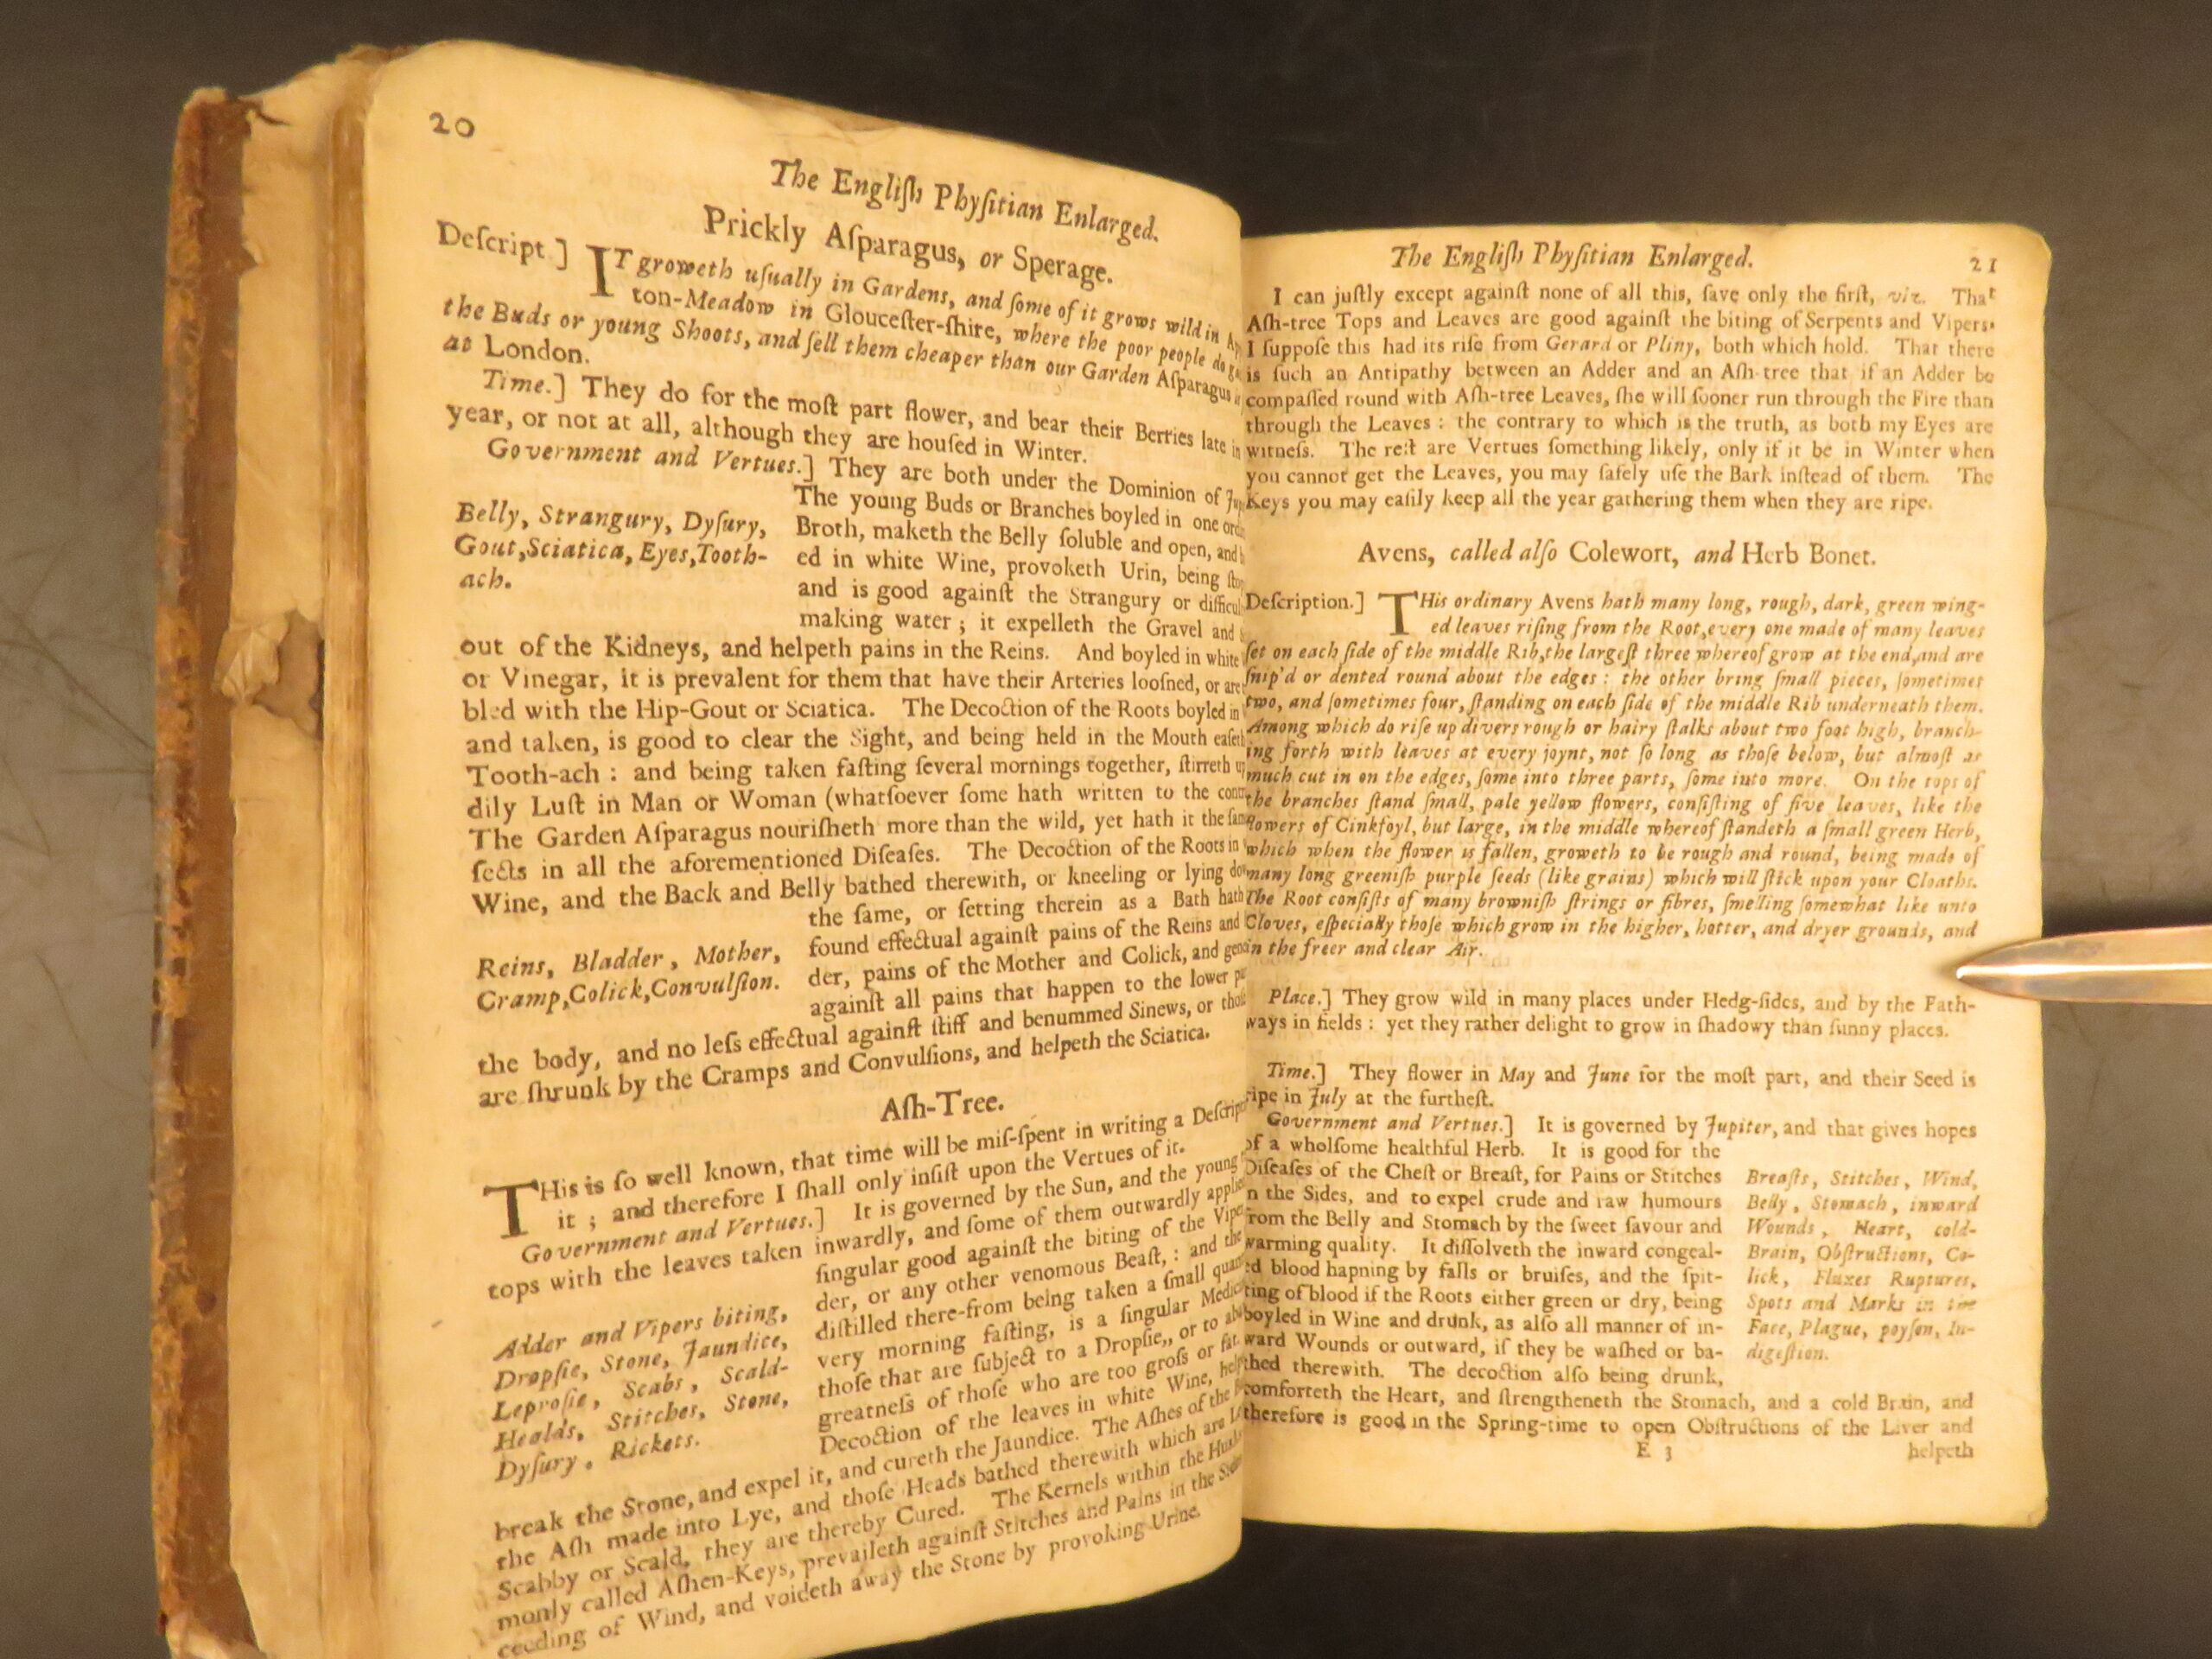 20
The Engliſh Phyſitian Enlarged.
Prickly Aſparagus, or Sperage.
Deſcript ] IT groweth uſually in Gardens, and ſome of it grows wild in
ton-Meadow in Glouceſter-ſhire, where the poor people do
the Buds or young Shoots, and ſell them cheaper than our Garden Aſparagus
at London.
Time.] They do for the moſt part flower, and bear their Berries late in
year, or not at all, although they are houſed in Winter.
Government and Vertues.] They are both under the Dominion of
The young Buds or Branches boyled in one
Belly, Strangury, Dyſury,
Gout,Sciatica, Eyes,Tooth-
ach.
Broth, maketh the Belly ſoluble and open, and
ed in white Wine, provoketh Urin, being
and is good againſt the Strangury or
making water ; it expelleth the Gravel and
out of the Kidneys, and helpeth pains in the Reins. And boyled in white
or Vinegar, it is prevalent for them that have their Arteries looſned, or are
bled with the Hip-Gout or Sciatica. The Decoction of the Roots boyled in
and taken, is good to clear the Sight, and being held in the Mouth eaſeth
Tooth-ach : and being taken faſting ſeveral mornings together, ſtirreth
dily Luſt in Man or Woman (whatſoever ſome hath written to the
The Garden Aſparagus nouriſheth more than the wild, yet hath it the
fects in all the aforementioned Diſeaſes. The Decoction of the Roots in
Wine, and the Back and Belly bathed therewith, or kneeling or lying
the ſame, or ſetting therein as a Bath hath
Reins, Bladder, Mother,
Cramp,Colick,Convulſion.
found effectual againſt pains of the Reins and
der, pains of the Mother and Colick, and
againſt all pains that happen to the lower
the body, and no leſs effectual againſt ſtiff and benummed Sinews, or
are ſhrunk by the Cramps and Convulſions, and helpeth the Sciatica.
Aſh-Tree.
THis is ſo well known, that time will be miſ-ſpent in writing a
it ; and therefore I ſhall only inſiſt upon the Vertues of it.
Government and Vertues.] It is governed by the Sun, and the young
tops with the leaves taken inwardly, and ſome of them outwardly
ſingular good againſt the biting of the
Adder and Vipers biting,
Dropſie, Stone, Jaundice,
Leproſie, Scabs, Scald-
Healds, Stitches, Stone,
Dyſury, Rickets.
der, or any other venomous Beaſt, : and the
diſtilled there-from being taken a ſmall
very morning faſting, is a ſingular
thoſe that are ſubject to a Dropſie,, or to
greatneſs of thoſe who are too groſs or fat.
Decoction of the leaves in white Wine,
break the Stone, and expel it, and cureth the Jaundice. The Aſhes of the
the Aſh made into Lye, and thoſe Heads bathed therewith which are
Scabby or Scald, they are thereby Cured. The Kernels within the
monly called Aſhen-Keys, prevaileth againſt Stitches and Pains in the
ceeding of Wind, and voideth away the Stone by provoking Urine.
The Engliſh Phyſitian Enlarged. 21
I can juſtly except againſt none of all this, ſave only the firſt, viz. That
Aſh-tree Tops and Leaves are good againſt the biting of Serpents and Vipers.
I ſuppoſe this had its riſe from Gerard or Pliny, both which hold. That there
is ſuch an Antipathy between an Adder and an Aſh-tree that if an Adder be
compaſſed round with Aſh-tree Leaves, ſhe will ſooner run through the Fire than
through the Leaves : the contrary to which is the truth, as both my Eyes are
witneſs. The reſt are Vertues ſomething likely, only if it be in Winter when
you cannot get the Leaves, you may ſafely uſe the Bark inſtead of them. The
Keys you may eaſily keep all the year gathering them when they are ripe.
Avens, called alſo Colewort, and Herb Bonet.
Deſcription.] THis ordinary Avens hath many long, rough, dark, green wing-
ed leaves riſing from the Root,every one made of many leaves
ſet on each ſide of the middle Rib,the largeſt three whereof grow at the end,and are
ſnip'd or dented round about the edges : the other bring ſmall pieces, ſometimes
two, and ſometimes four, ſtanding on each ſide of the middle Rib underneath them.
Among which do riſe up divers rough or hairy ſtalks about two foot high, branch-
ing forth with leaves at every joynt, not ſo long as thoſe below, but almoſt as
much cut in on the edges, ſome into three parts, ſome into more. On the tops of
the branches ſtand ſmall, pale yellow flowers, conſiſting of five leaves, like the
flowers of Cinkfoyl, but large, in the middle whereof ſtandeth a ſmall green Herb,
which when the flower is fallen, groweth to be rough and round, being made of
many long greeniſh purple ſeeds (like grains) which will ſtick upon your Cloaths.
The Root conſiſts of many browniſh ſtrings or fibres, ſmelling ſomewhat like unto
Cloves, eſpecially thoſe which grow in the higher, hotter, and dryer grounds, and
in the freer and clear Air.
Place.] They grow wild in many places under Hedg-ſides, and by the Path-
ways in fields : yet they rather delight to grow in ſhadowy than ſunny places.
Time.] They flower in May and June for the moſt part, and their Seed is
ripe in July at the furtheſt.
Government and Vertues.] It is governed by Jupiter, and that gives hopes
of a wholſome healthful Herb. It is good for the
Diſeaſes of the Cheſt or Breaſt, for Pains or Stitches
in the Sides, and to expel crude and raw humours
from the Belly and Stomach by the ſweet ſavour and
warming quality. It diſſolveth the inward congeal-
ed blood hapning by falls or bruiſes, and the ſpit-
ting of blood if the Roots either green or dry, being
boyled in Wine and drunk, as alſo all manner of in-
ward Wounds or outward, if they be waſhed or ba-
thed therewith. The decoction alſo being drunk,
Breaſts, Stitches, Wind,
Belly, Stomach, inward
Wounds, Heart, cold-
Brain, Obſtructions, Co-
lick, Fluxes Ruptures,
Spots and Marks in the
Face, Plague, poyſon, In-
digeſtion.
comforteth the Heart, and ſtrengtheneth the Stomach, and a cold Brain, and
therefore is good in the Spring-time to open Obſtructions of the Liver and
E 3 helpeth